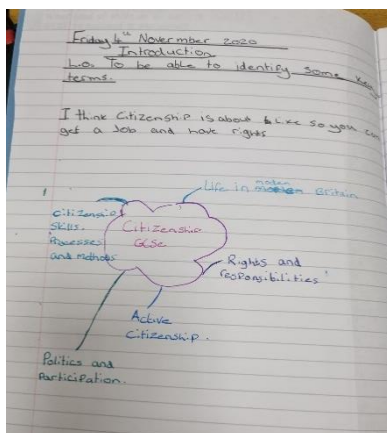 Friday 4th November 2020
Introduction
L.O. To be able to identify some key
terms.
I think Citizenship is about like so you can
get a Job and have rights
Life in modern Britain
Citizenship
Skills.
Processes
and methods
Citizenship
GCSE
Rights and
responsibilities
Active
Citizenship.
Politics and
Participation.